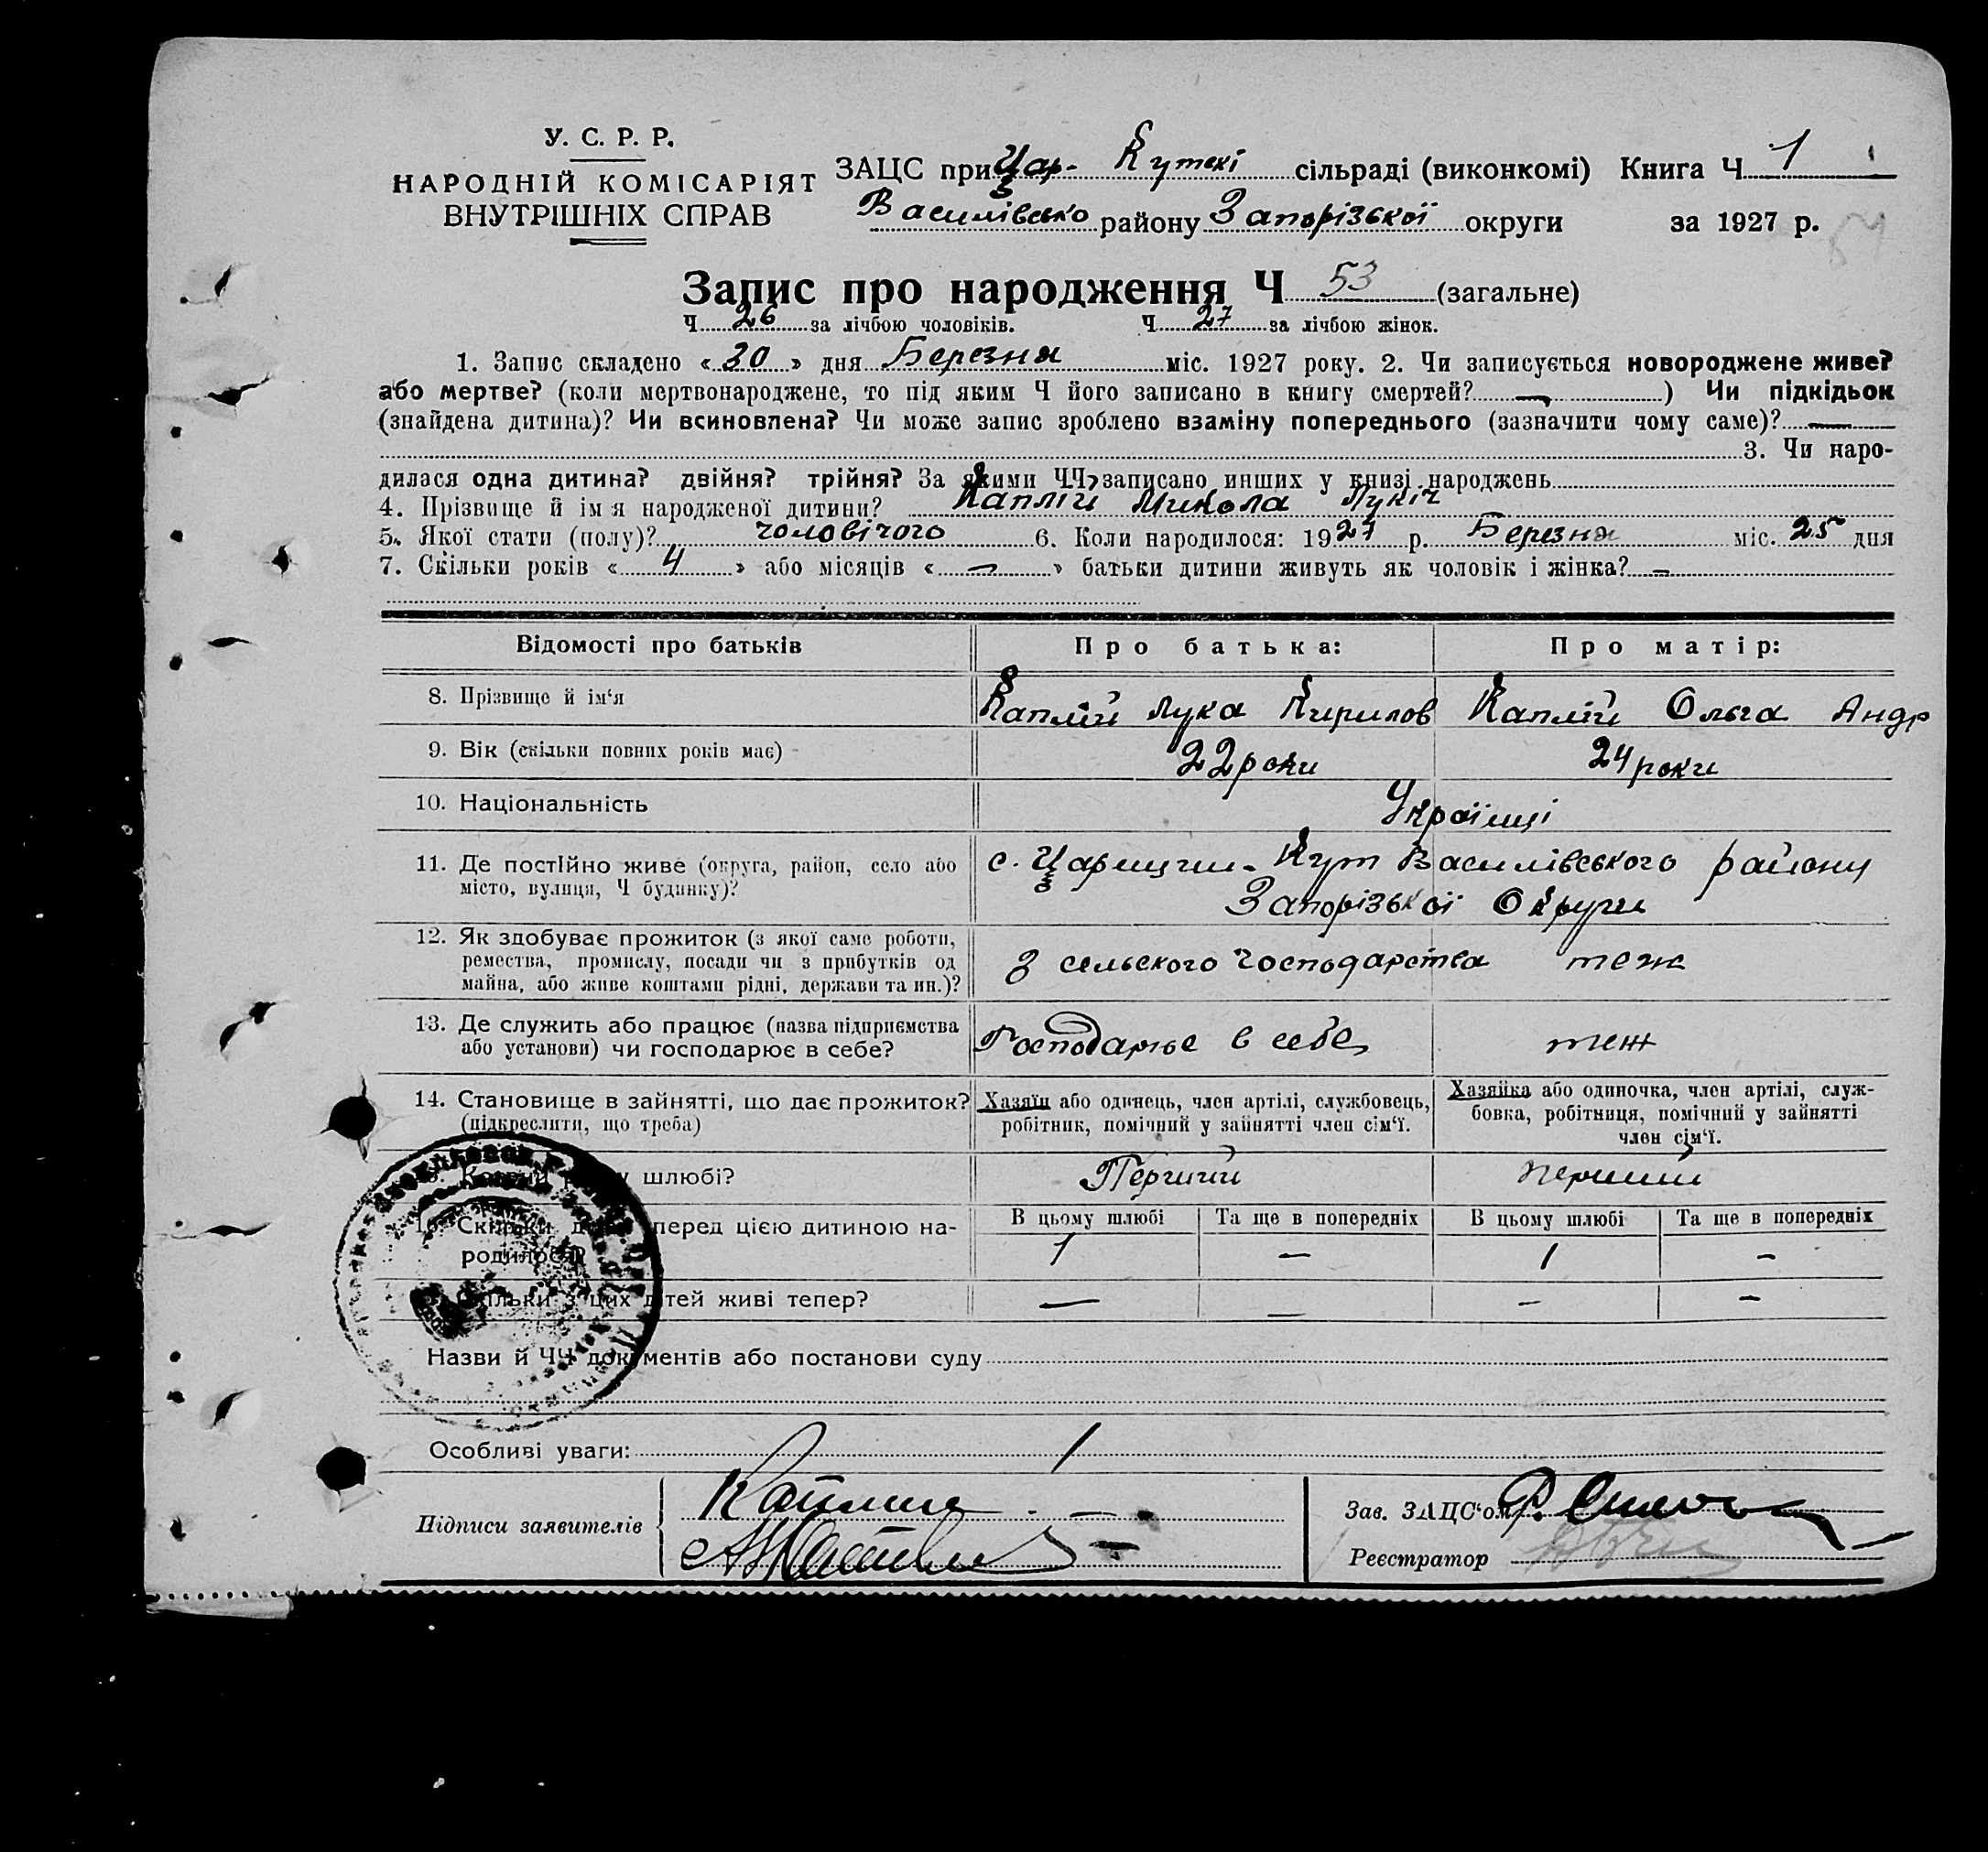 У. С. Р. Р.
НАРОДНІЙ КОМІСАРІЯТ
ВНУТРІШНІХ СПРАВ
ЗАЦС при Цар- Кутскі сільраді (виконкомі) Книга Ч 1
Василівсько району Запорізької округи за 1927 р.
Запис про народження Ч 53 (загальне)
Ч 26 за лічбою чоловіків. Ч 27 за лічбою жінок.
1. Запис складено « 30 » дня Березня міс. 1927 року. 2. Чи записується новороджене живе?
або мертве? (коли мертвонароджене, то під яким Ч його записано в книгу смертей? — ) Чи підкідьок
(знайдена дитина)? Чи всиновлена? Чи може запис зроблено взаміну попереднього (зазначити чому саме)? —
3. Чи наро-
дилася одна дитина? двійня? трійня? За якими ЧЧ записано инших у книзі народжень
4. Прізвище й ім'я народженої дитини? Каплій Микола Лукіч
5. Якої стати (полу)? чоловічого 6. Коли народилося: 1927 р. Березня міс. 25 дня
7. Скільки років « 4 » або місяців « — » батьки дитини живуть як чоловік і жінка? —
Відомості про батьків Про батька: Про матір:
8. Прізвище й ім‘я Каплій Лука Кирилов Каплій Ольга Андр
9. Вік (скільки повних років має) 22 роки 24 роки
10. Національність Українці
11. Де постійно живе (округа, район, село або с. Царицин-Кут Василівського району
місто, вулиця, Ч будинку)? Запорізької Округи
12. Як здобуває прожиток (з якої саме роботи,
ремества, промислу, посади чи з прибутків од з сельского господарства теж
майна, або живе коштами рідні, держави та ин.)?
13. Де служить або працює (назва підприємства
або установи) чи господарює в себе? Господарює в себе теж
14. Становище в зайнятті, що дає прожиток? Хазяїн або одинець, член артілі, службовець, Хазяйка або одиночка, член артілі, служ-
(підкреслити, що треба) робітник, помічний у зайнятті член сім‘ї. бовка, робітниця, помічний у зайнятті
член сім‘ї.
шлюбі? Перший перший
16. Скільки перед цією дитиною на- В цьому шлюбі Та ще в попередніх В цьому шлюбі Та ще в попередніх
родилося? 1 — 1 —
Скільки з цих дітей живі тепер? — — — —
Назви й ЧЧ документів або постанови суду
Особливі уваги: /
Підписи заявителів
Зав. ЗАЦС‘ом
Реєстратор